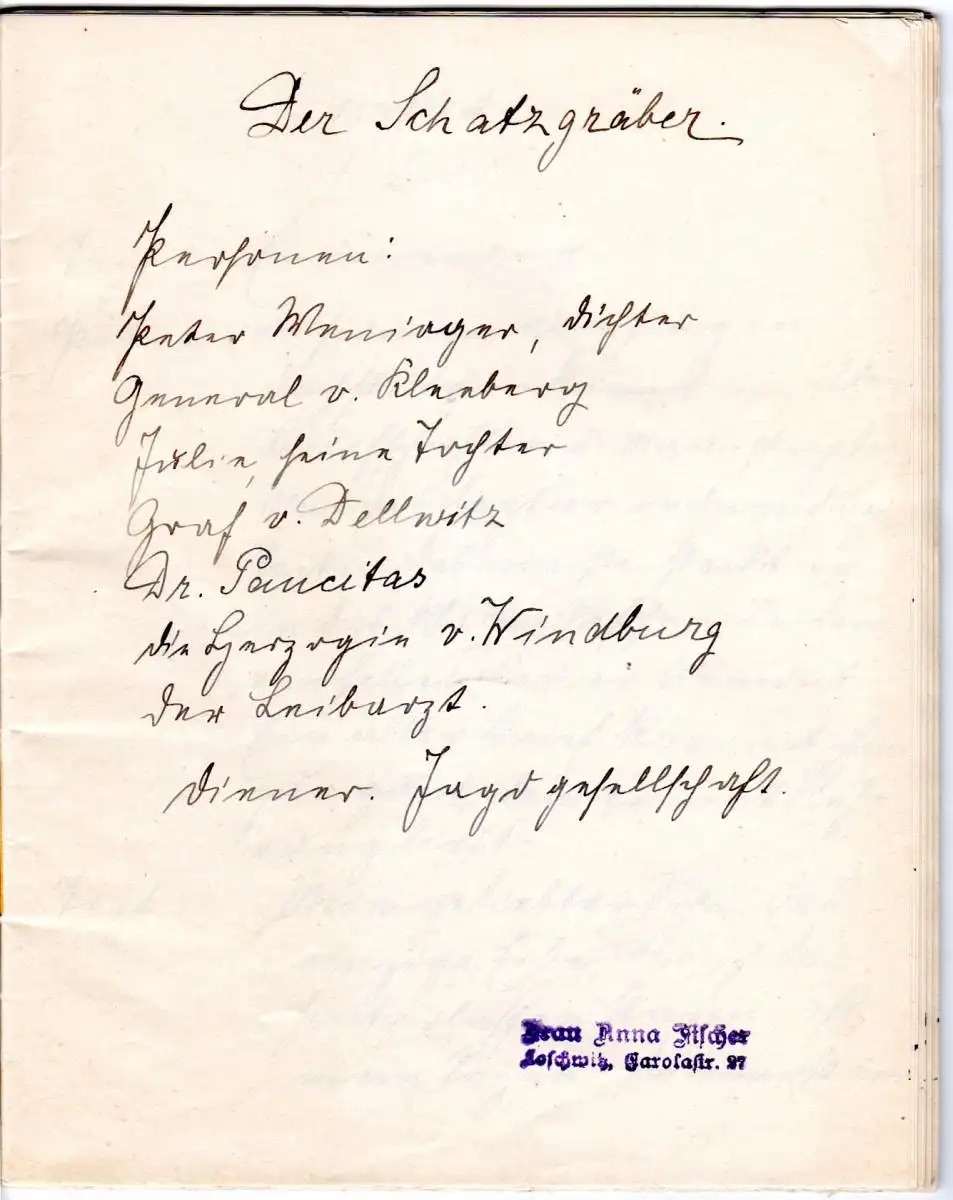 Der Schatzgräber.
Personen:
Peter Weninger, Dichter
General v. Kleeberg
Julie, seine Tochter
Graf v. Dellwitz
Dr. Paucitas
die Herzogin v. Windburg
der Leibarzt.
Diener. Jagdgesellschaft.
Frau Anna Fischer
Loschwitz, Carolastr. 27